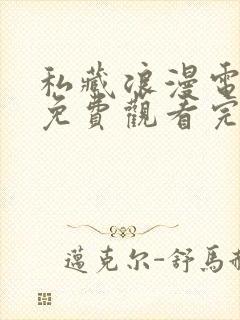 私藏浪漫電
免費觀看完
邁克尔-舒馬赫